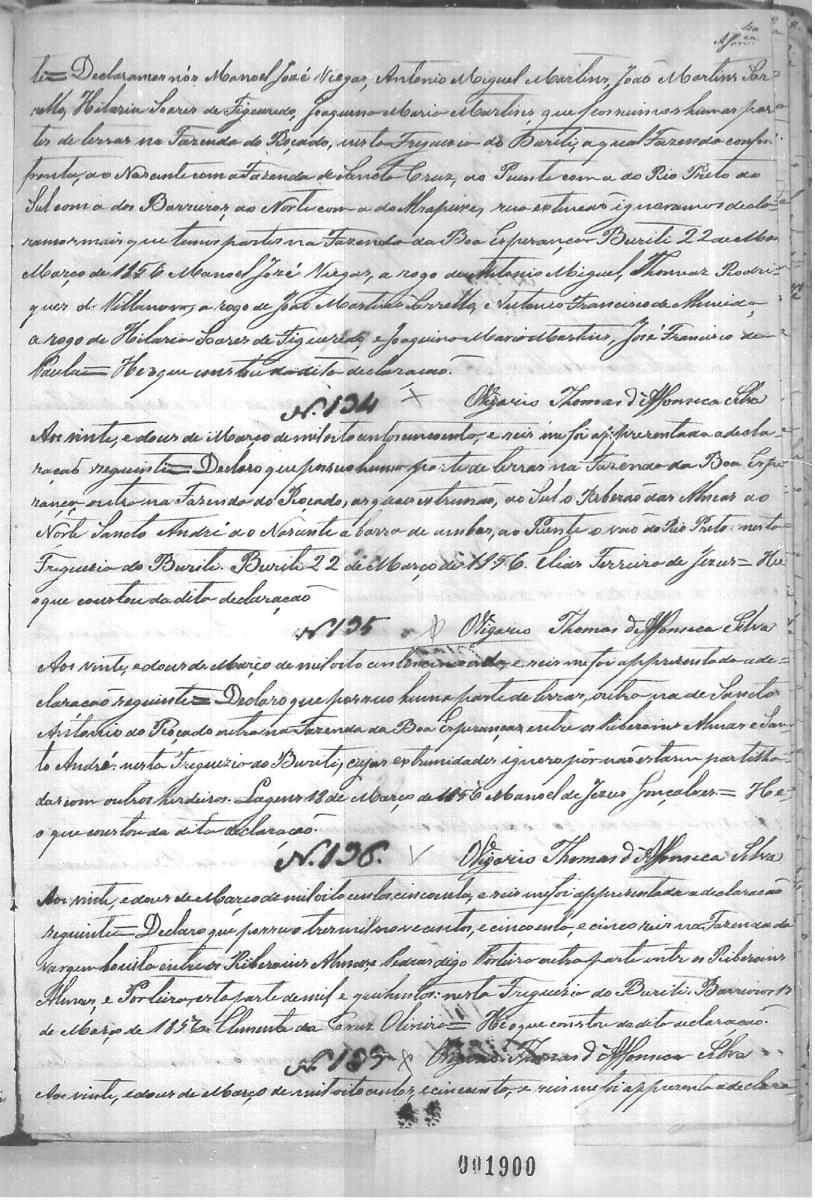 40
Affon.ca
te = Declaramos nós Manoel José Viegas, Antonio Miguel Martins, João Martins Ser-
rello, Hilaria Soares de Figueredo, Joaquina Maria Martins, que possuimos humas par-
tes de terras na Fazenda do Roçado, nesta Freguezia do Buriti, a qual Fazenda conf
fronta, ao Nascente com a Fazenda de Sancta Cruz, ao Puente com a do Rio Preto ao
Sul com a dos Barreros, ao Norte com a do, sua extenção ignoramos decla
ramos mais que temos partes na Fazenda da Boa Esperança Buriti 22 de Ma
Março de 1856 Manoel José Viegas, a rogo de Antonio Miguel, Thomaz Rodri-
gues de Villanova, a rogo de João Martins Serrello, e Antonio Francisco de Almeida,
a rogo de Hilaria Soares de Figueredo, e Joaquina Maria Martins, José Francisco de
Paula = He o que constou da dita declaração.
N. 134 Vigario Thomas d'Affonseca Silva
Aos vinte, e dous de Março de mil oito centos cincoenta, e seis me foi appresentada a decla
ração seguinte = Declaro que possuo huma parte de terras na Fazenda da Boa Espe
rança, outra na Fazenda do Roçado, as quaes extremão, ao Sul o Riberão das Almas ao
Norte Sancto André ao Nascente a barra de ambos, ao Puente o vão do Rio Preto: nesta
Freguezia do Buriti. Buriti 22 de Março de 1856. Elias Ferreira de Jezus = He
o que constou da dita declaração
N. 135 Vigario Thomas d'Affonseca Silva
Aos vinte, e dous de Março de mil oito centos cincoenta, e seis me foi appresentada a de-
claração seguinte = Declaro que possuo huma parte de terras, outra na de Sancto
Antonio do Roçado outra na Fazenda da Boa Esperança, entre os Riberoins Almas e San-
to André: nesta Freguezia do Buriti, cujas extremidades ignoro por não estarem partilha-
das com outros herdeiros. Lagens 18 de Março de 1856 Manoel de Jezus Gonçalves = He
o que constou da dita declaração.
N. 136. Vigario Thomas d'Affonseca Silva
Aos vinte, e dous de Março de mil oito centos, cincoenta, e seis me foi appresentada a declaração
seguinte = Declaro que possuo tres mil nove centos, e cincoenta, e cinco reis na Fazenda da
vargem bonita entre os Riberoins Almas, e Pedras digo Porteira outra parte entre os Riberoins
Almas, e Porteira, esta parte de mil e quinhentos: nesta Freguezia do Buriti. Barreiros 17
de Março de 1856. Clemente da Cruz Oliveira = He o que constou da dita declaração.
N. 137 Vigario Thomas d'Affonseca Silva
Aos vinte, e dous de Março de mil oito centos, e cincoenta, e seis me foi appresenta a declara
001900